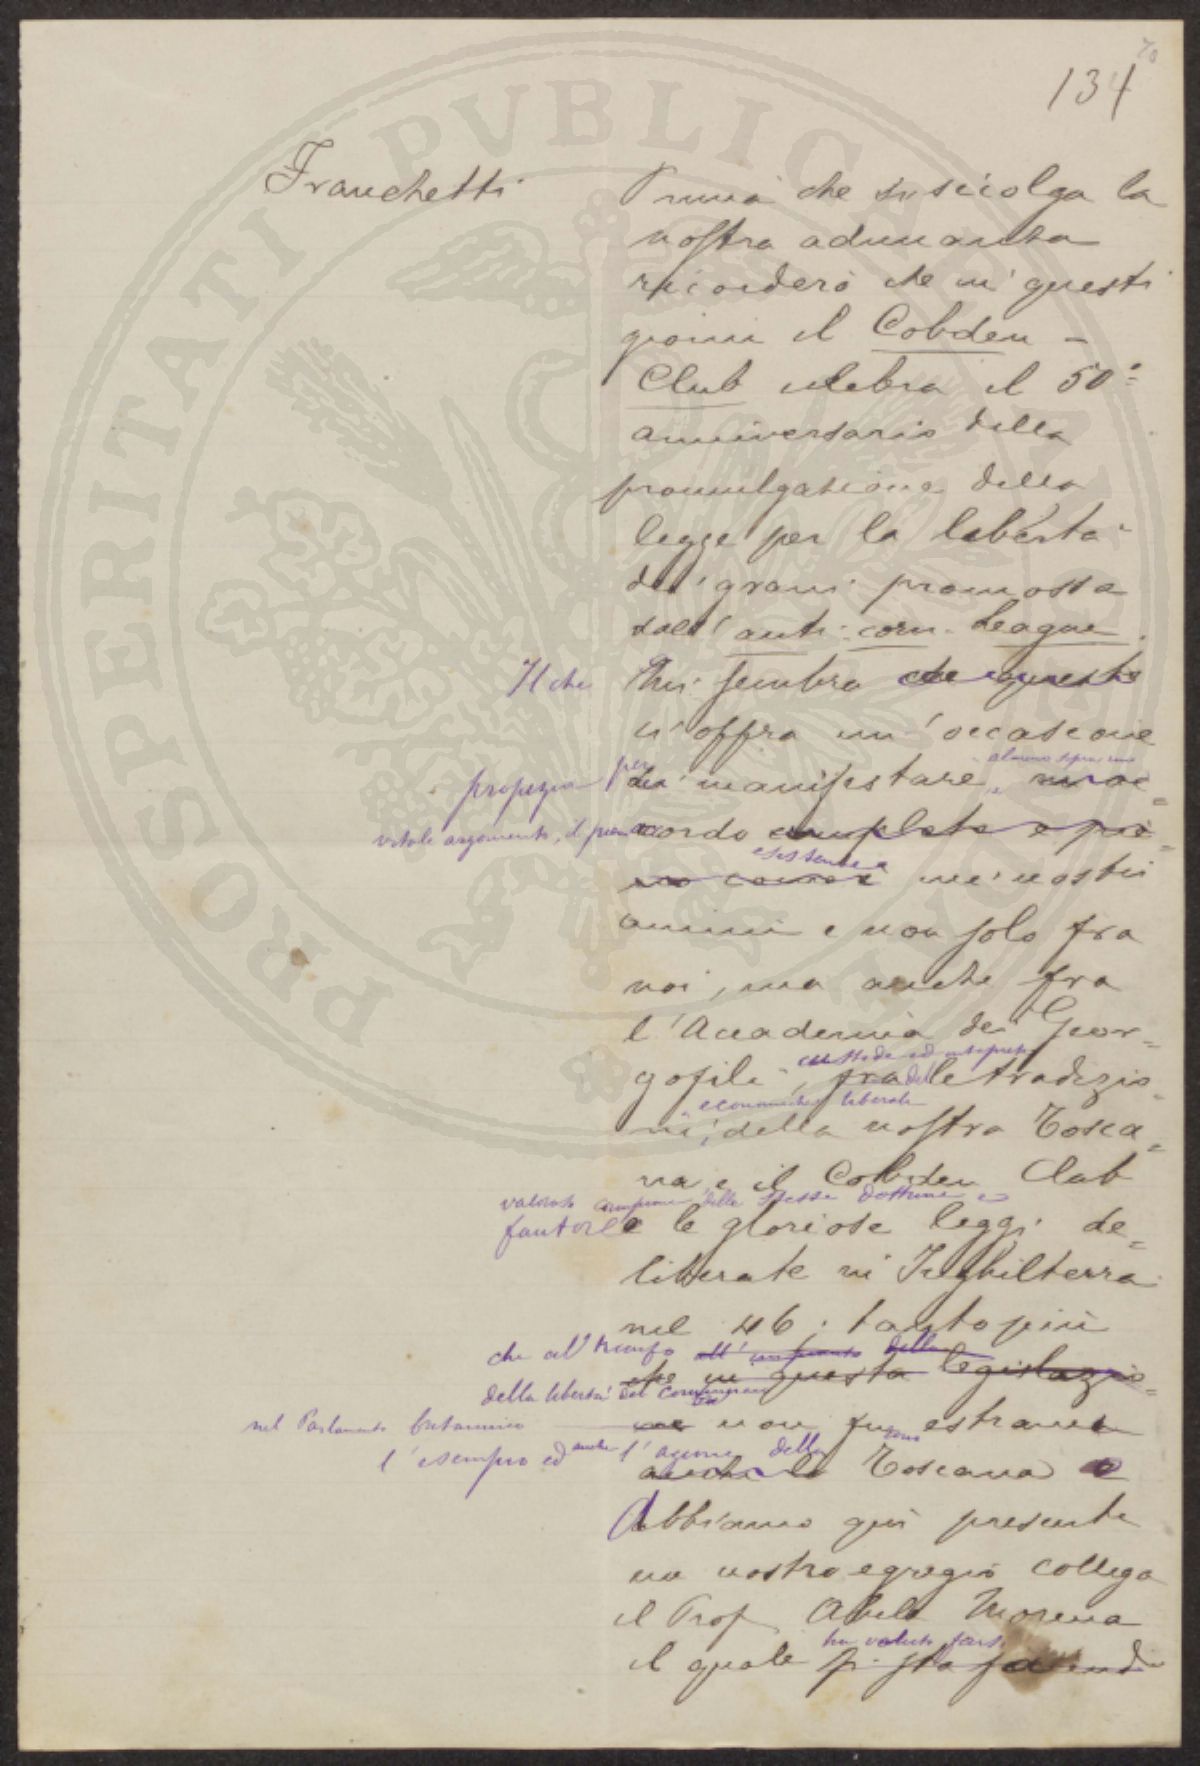 70
134
Franchetti
Prima che si sciolga la
nostra adunanza
ricorderò che in questi
giorni il Cobden -
Club celebra il 50°=
anniversario della
promulgazione della
legge per la libertà
dei grani promossa
dall'anti-corn-League.
Il che Mi sembra che questo
ci offra un'occasione
propizia per di manifestare, almeno sopra un un ac=
vitale argomento, il pieno cordo completo e pie=
no come esistente ne' nostri
animi e non solo fra
noi, ma anche fra
l'Accademia dei Geor=
gofili, custode ed interprete fra delle tradizio=
ni economiche liberali della nostra Tosca=
na e il Cobden Club
valoroso campione delle stesse dottrine e
fautore le gloriose leggi de=
liberate in Inghilterra
nel 46; tanto più
che al trionfo all' della
che in questa legislazio=
della libertà del commercio
nel Parlamento britannico ne non fu estranea
l'esempio ed anche l'azione della anche la Toscana e
Abbiamo qui presente
un nostro egregio collega
il Prof. Abele Morena
il quale ha voluto farsi si sta facendo
PROSPERITATI PVBLICAE AVGENDAE